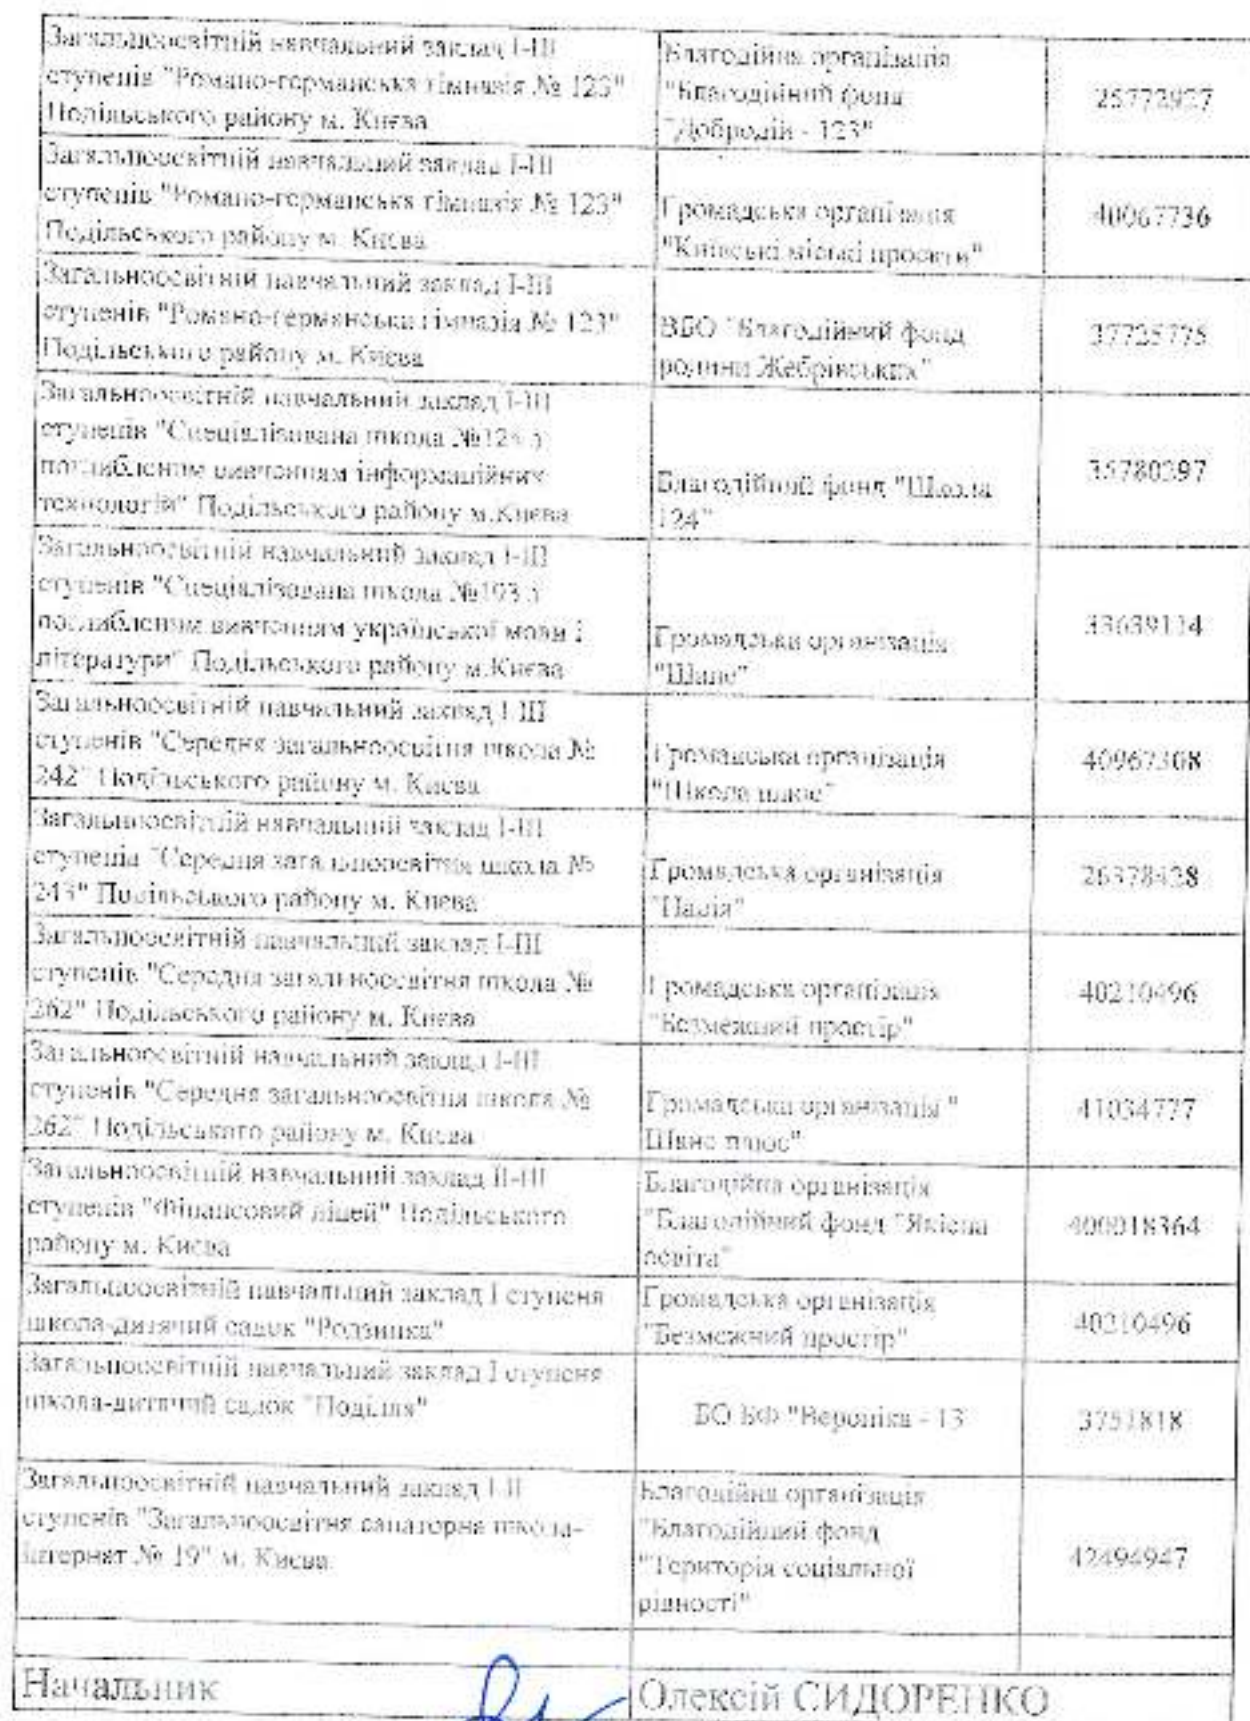 Загальноосвітній навчальний заклад І-ІІІ
ступенів "Романо-германська гімназія № 123"
Подільського району м. Києва
Благодійна організація
"Благодійний фонд
"Добродій - 123"
25772927
Загальноосвітній навчальний заклад І-ІІІ
ступенів "Романо-германська гімназія № 123"
Подільського району м. Києва
Громадська організація
"Київські міські проекти"
40067736
Загальноосвітній навчальний заклад І-ІІІ
ступенів "Романо-германська гімназія № 123"
Подільського району м. Києва
ВБО "Благодійний фонд
родини Жебрівських"
37725775
Загальноосвітній навчальний заклад І-ІІІ
ступенів "Спеціалізована школа №124 з
поглибленим вивченням інформаційних
технологій" Подільського району м.Києва
Благодійний фонд "Школа
124"
35780397
Загальноосвітній навчальний заклад І-ІІІ
ступенів "Спеціалізована школа №193 з
поглибленим вивченням української мови і
літератури" Подільського району м.Києва
Громадська організація
"Шанс"
33639114
Загальноосвітній навчальний заклад І-ІІІ
ступенів "Середня загальноосвітня школа №
242" Подільського району м. Києва
Громадська організація
"Школа плюс"
40967308
Загальноосвітній навчальний заклад І-ІІІ
ступенів "Середня загальноосвітня школа №
243" Подільського району м. Києва
Громадська організація
"Надія"
26378428
Загальноосвітній навчальний заклад І-ІІІ
ступенів "Середня загальноосвітня школа №
262" Подільського району м. Києва
Громадська організація
"Безмежний простір"
40210496
Загальноосвітній навчальний заклад І-ІІІ
ступенів "Середня загальноосвітня школа №
262" Подільського району м. Києва
Громадська організація "
Шанс плюс"
41034777
Загальноосвітній навчальний заклад ІІ-ІІІ
ступенів "Фінансовий ліцей" Подільського
району м. Києва
Благодійна організація
"Благодійний фонд "Якісна
освіта"
400018364
Загальноосвітній навчальний заклад І ступеня
школа-дитячий садок "Родзинка"
Громадська організація
"Безмежний простір"
40210496
Загальноосвітній навчальний заклад І ступеня
школа-дитячий садок "Поділля"
БО БФ "Вероніка - 13
3751818
Загальноосвітній навчальний заклад І-ІІ
ступенів "Загальноосвітня санаторна школа-
інтернат № 19" м. Києва
Благодійна організація
"Благодійний фонд
"Територія соціальної
рівності"
42494947
Начальник
Олексій СИДОРЕНКО